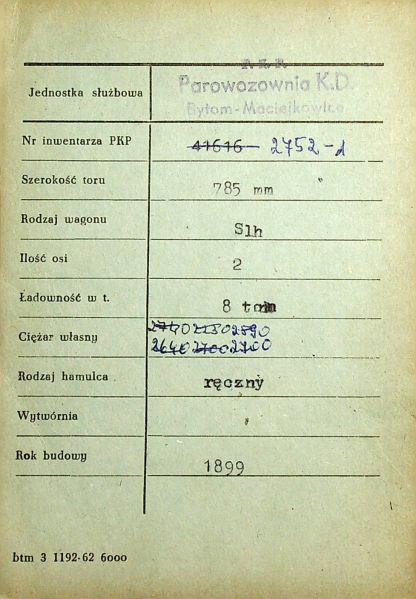 P.K.P.
Jednostka służbowa Parowozownia K.D.
Bytom-Maciejkowice
Nr inwentarza PKP 41616 2752-d
Szerokość toru 785 mm
Rodzaj wagonu Slh
Ilość osi 2
Ładowność w t. 8 ton
2740 2280 2890
Ciężar własny
2640 2700 2700
Rodzaj hamulca ręczny
Wytwórnia
Rok budowy 1899
btm 3 1192-62 6000